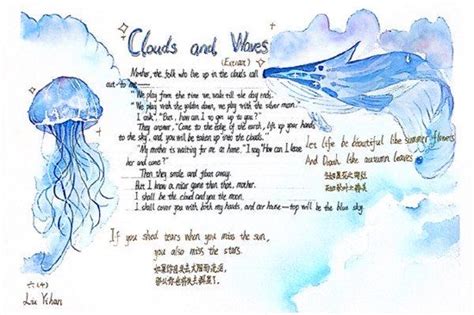 Clouds and Waves
(Excerpt)
Mother, the folk who live up in the clouds call
out to me—
"We play from the time we wake till the day ends.
"We play with the golden dawn, we play with the silver moon."
I ask, "But, how am I to get up to you?"
They answer, "Come to the edge of the earth, lift up your hands
to the sky, and you will be taken up into the clouds."
"My mother is waiting for me at home," I say. "How can I leave
her and come?"
Then they smile and float away.
But I know a nicer game than that, mother.
I shall be the cloud and you the moon.
I shall cover you with both my hands, and our house-top will be the blue sky.
Let life be beautiful like summer flowers
And Death like autumn leaves.
生如夏花之绚烂
死如秋叶之静美
If you shed tears when you miss the sun,
you also miss the stars.
如果你因失去太阳而流泪,
那么你也将失去群星了。
六(4)
Liu Yihan